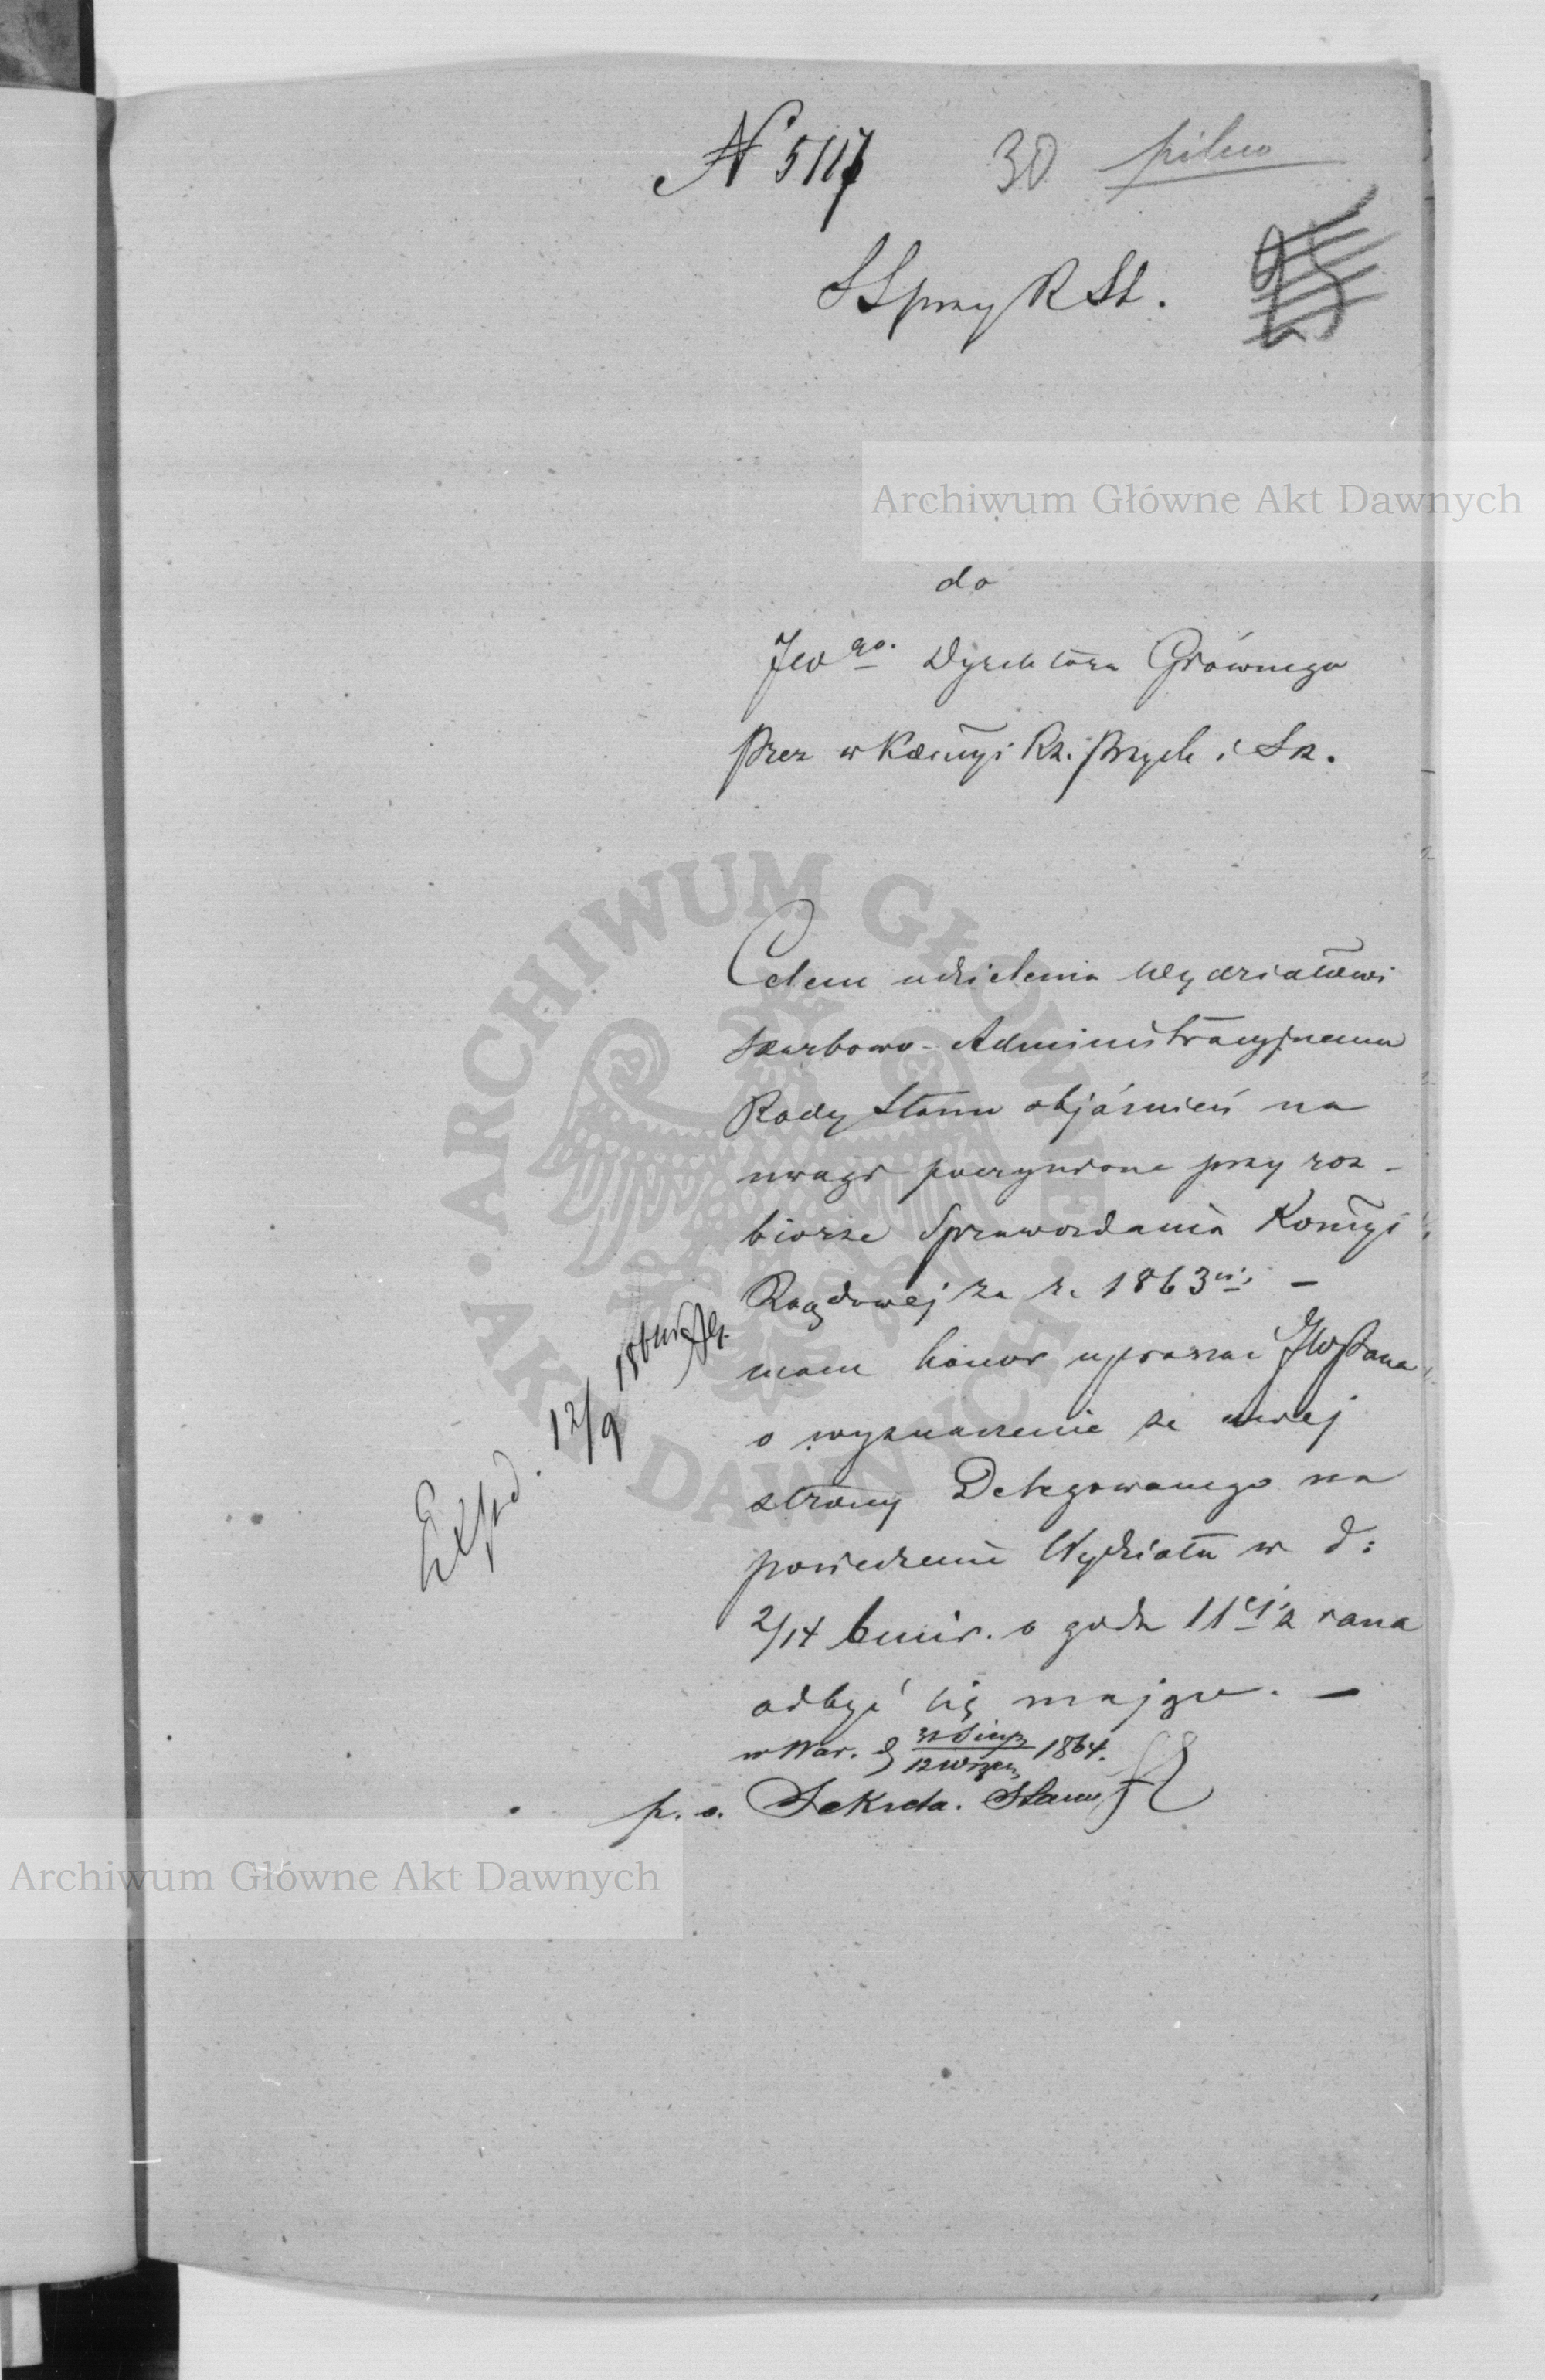 N 5117 30 pilno
SS przy R St.
95
do
JW go. Dyrektora Głównego
Prez w Komyi Rz. Przych i Sk.
Celem udzielenia Wydziałowi
Skarbowo-Administracyjnemu
Rady Stanu objaśnień na
uwagi poczynione przy roz-
biorze Sprawozdania Komyi
Rządowej za r. 1863 –
mam honor upraszać JWPana
o wyznaczenie ze swej
strony Delegowanego na
posiedzenie Wydziału w d:
2/14 bm i r. o godz 11ej z rana
odbyć się mające. –
w War. d 31 Sierp 1864.
12 Wrześn
p. o. Sekreta. Stanu
Exped. 12/9 186
Archiwum Główne Akt Dawnych
ARCHIWUM GŁÓWNE
AKT DAWNYCH
Archiwum Główne Akt Dawnych